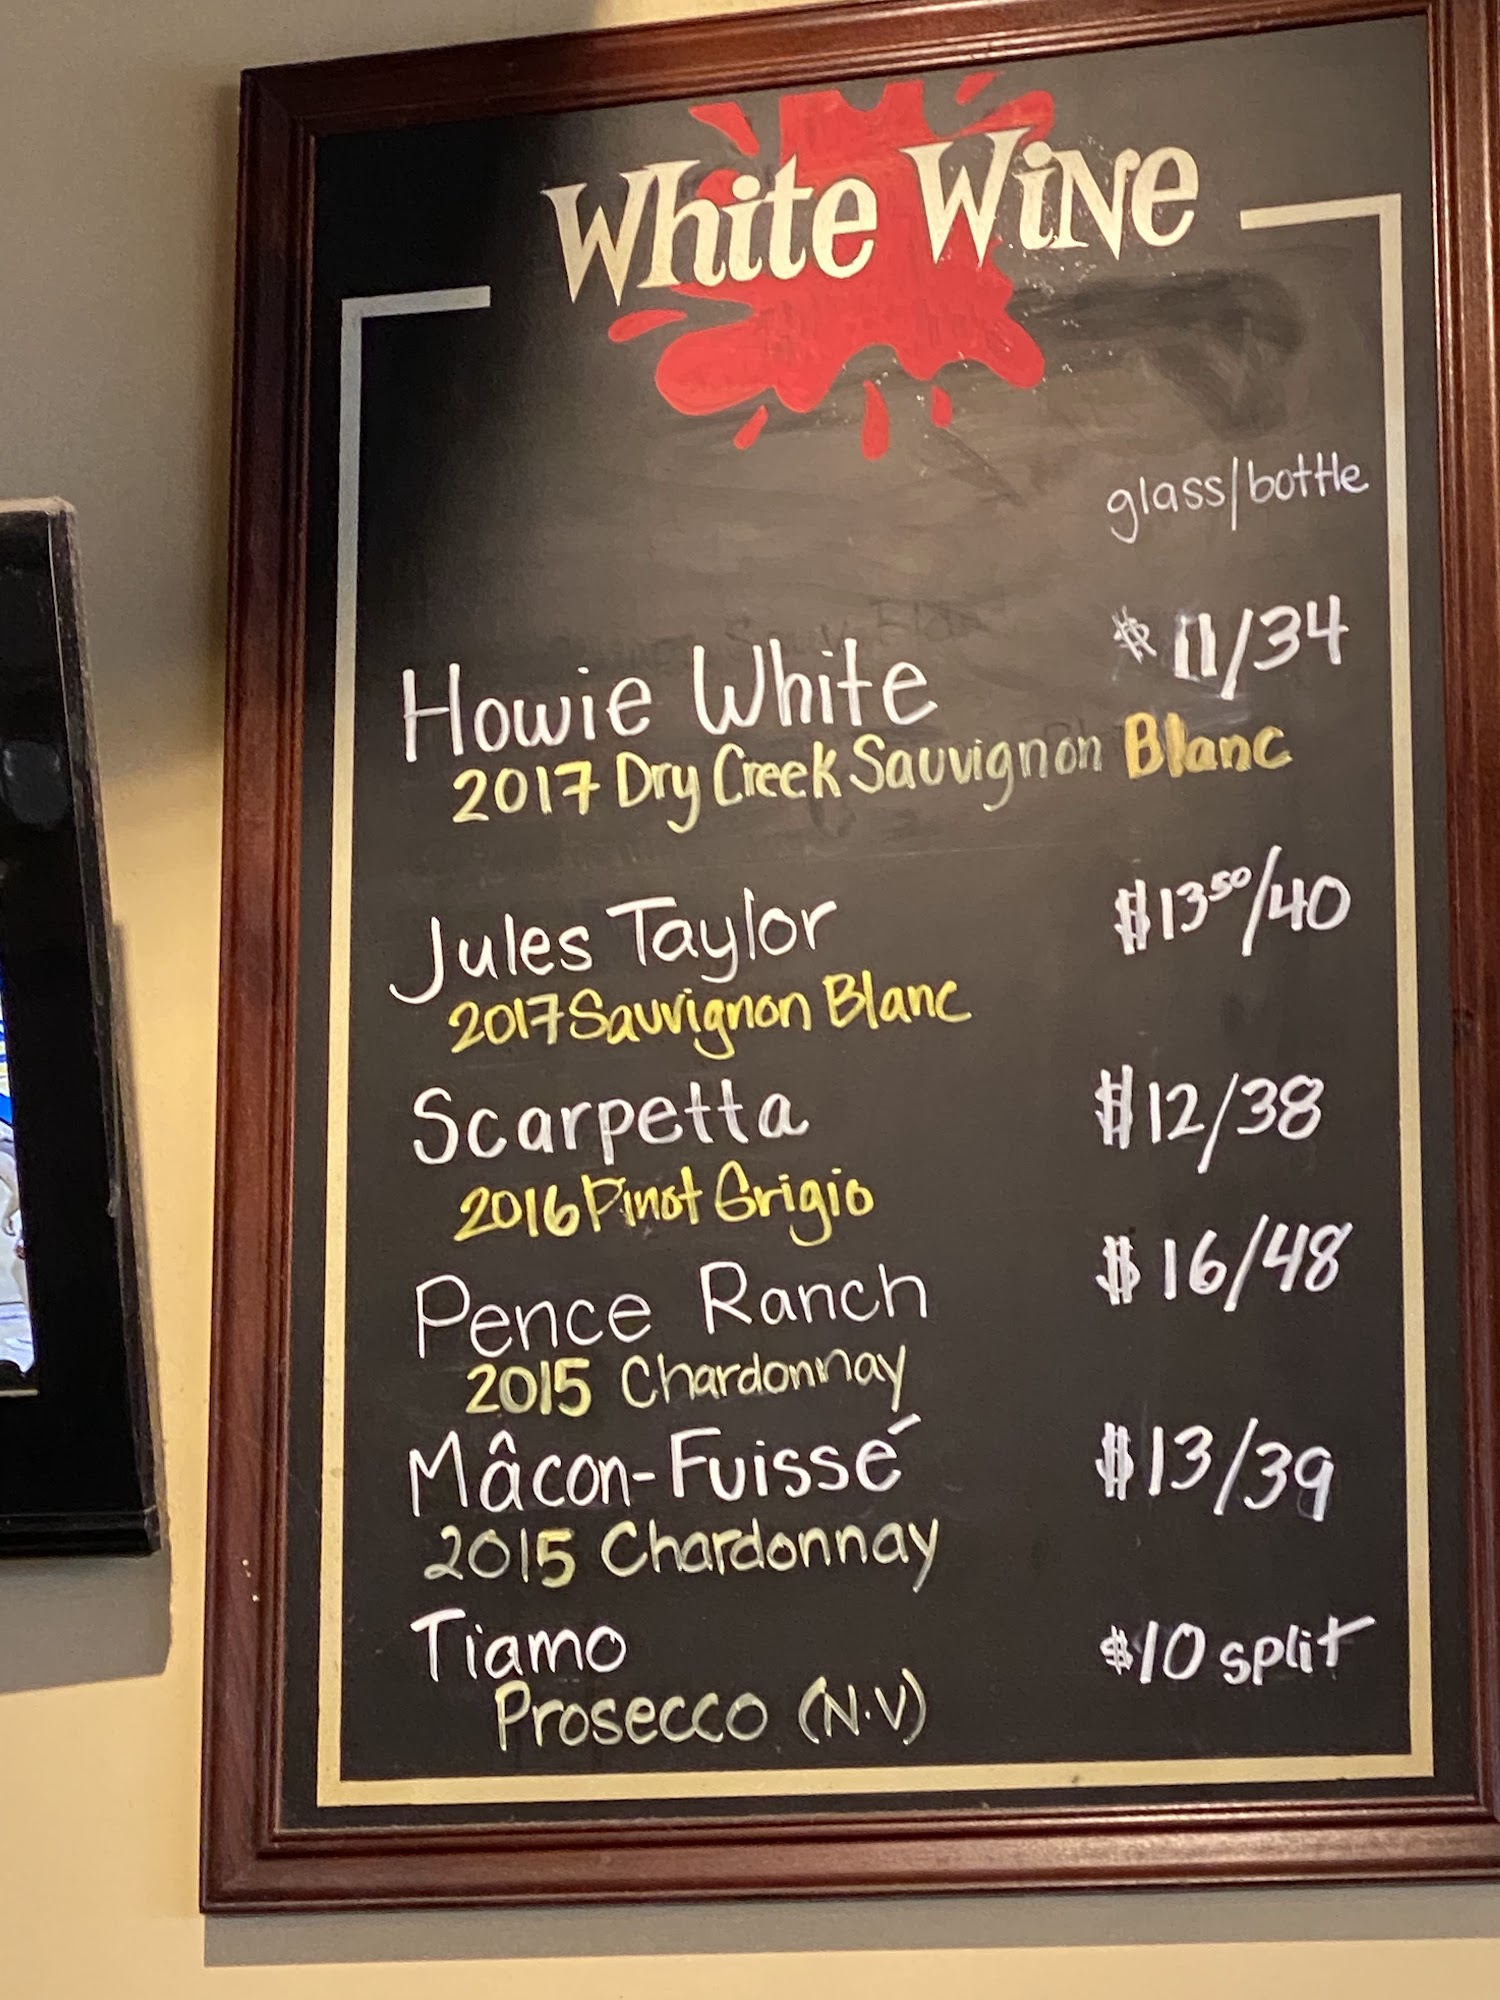 White Wine
glass/bottle
Howie White $11/34
2017 Dry Creek Sauvignon Blanc
Jules Taylor $13⁵⁰/40
2017 Sauvignon Blanc
Scarpetta $12/38
2016 Pinot Grigio
Pence Ranch $16/48
2015 Chardonnay
Mâcon-Fuissé $13/39
2015 Chardonnay
Tiamo $10 split
Prosecco (N.V)